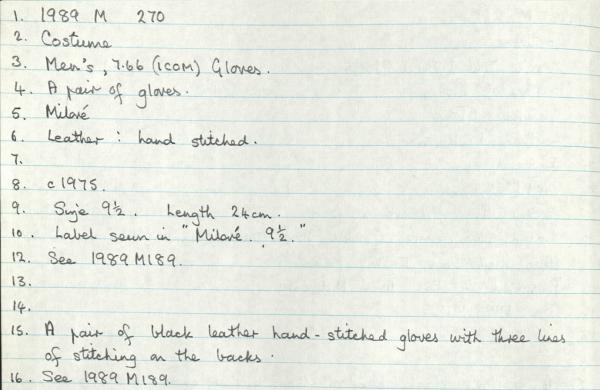 1. 1989 M 270
2. Costume
3. Men's, 7.66 (ICOM) Gloves.
4. A pair of gloves.
5. Miloré
6. Leather : hand stitched.
7.
8. c1975.
9. Size 9½. Length 24cm.
10. Label sewn in "Miloré. 9½."
12. See 1989 M189.
13.
14.
15. A pair of black leather hand-stitched gloves with three lines
of stitching on the backs.
16. See 1989 M189.